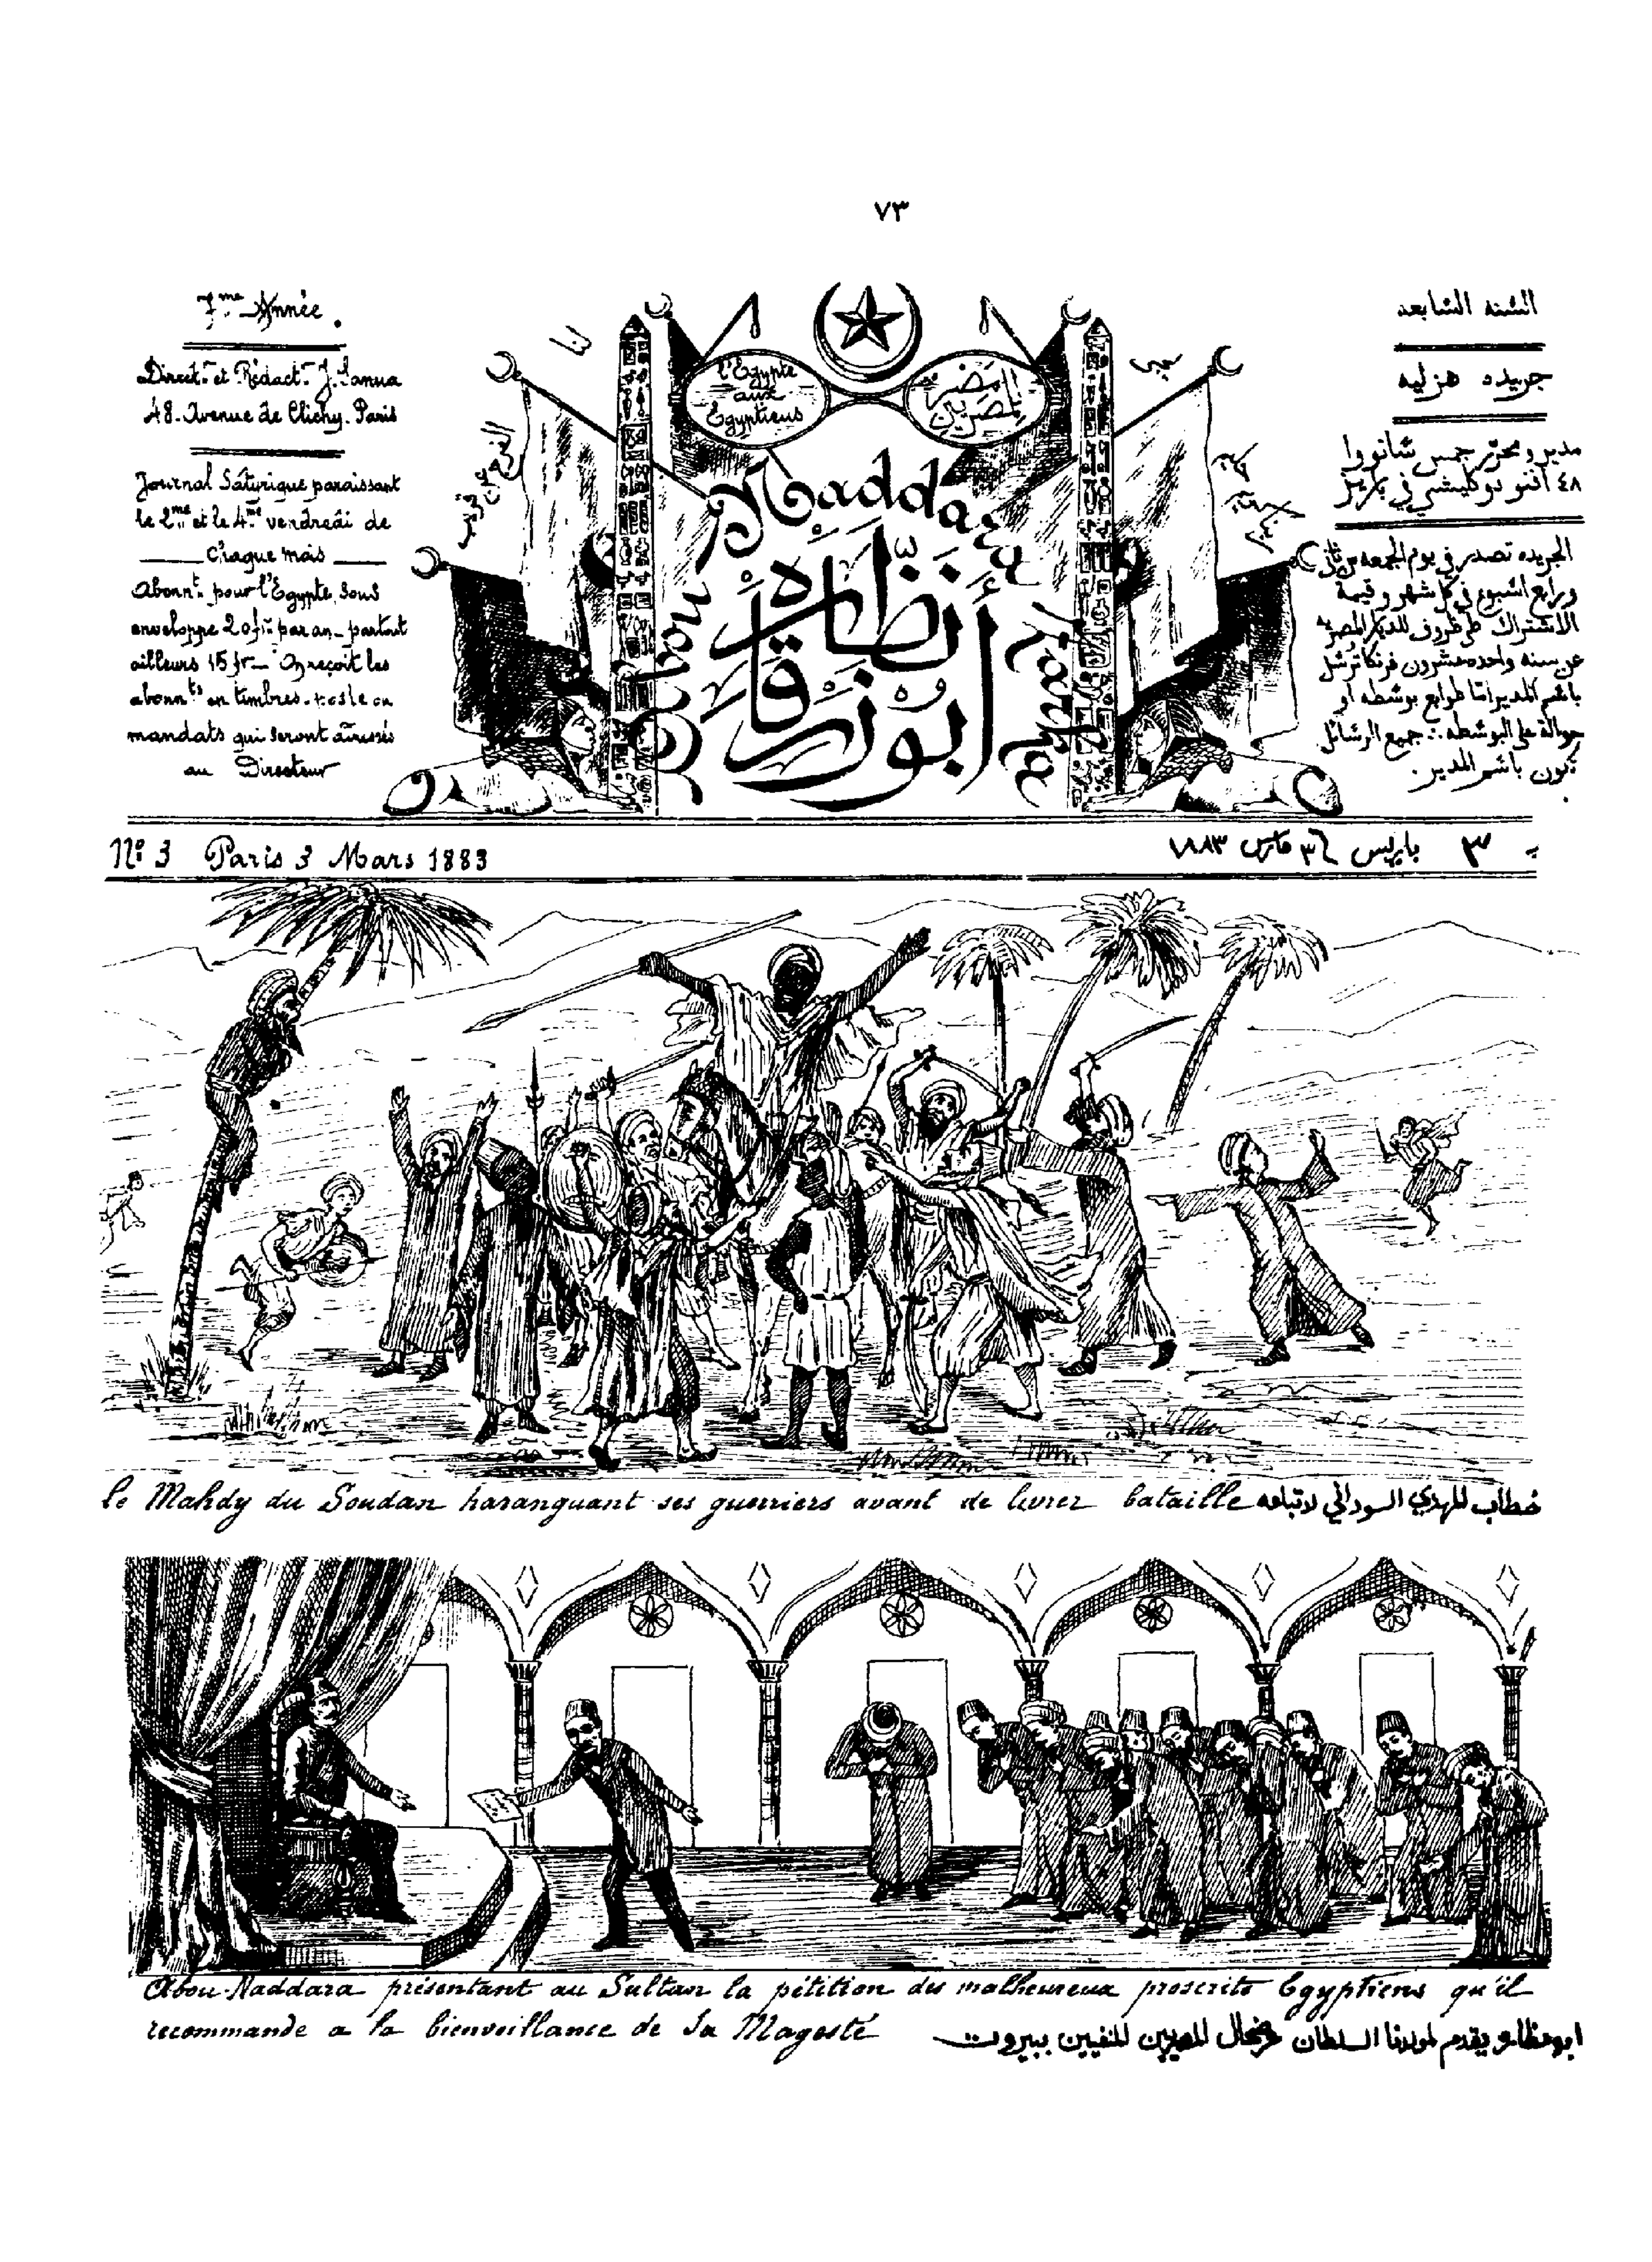 ٧٣
7me Année.
Direct.r et Rédact.r J. Sanua
48. Avenue de Clichy. Paris
Journal Satyrique paraissant
le 2me et le 4me vendredi de
chaque mois
Abonn.t pour l'Egypte, sous
enveloppe 20 fr. par an_ partout
ailleurs 15 fr_ On reçoit les
abonn.ts en timbres-poste ou
mandats qui seront adressés
au Directeur
l'Egypte
aux
Egyptiens
مصر
للمصريين
Abou Naddara Zarka
أبو نظّارة
زرقا
السنه السابعه
جريده هزليه
مدير و محرّر جمس سانووا
٤٨ افنو دوكليشي في باريز
الجريده تصدر في يوم الجمعه من ثاني
ورابع اسبوع في كل شهر وقيمة
الاشتراك
عن سنه واحده عشرون فرنكا ترسل
باسم المدير امّا طوابع بوسطه او
حوالة على البوسطه ∴ جميع الرسائل
تكون باسم المدير.
Nº 3 Paris 3 Mars 1883
٣ باريس ٣ مارس ١٨٨٣
le Mahdy du Soudan haranguant ses guerriers avant de livrer bataille
خطاب المهدي السوداني لاتباعه
Abou-Naddara présentant au Sultan la pétition des malheureux proscrits Egyptiens qu'il
recommande a la bienveillance de Sa Magesté
ابو نظاره يقدم لمولانا السلطان عرضحال المصريين المنفيين ببيروت